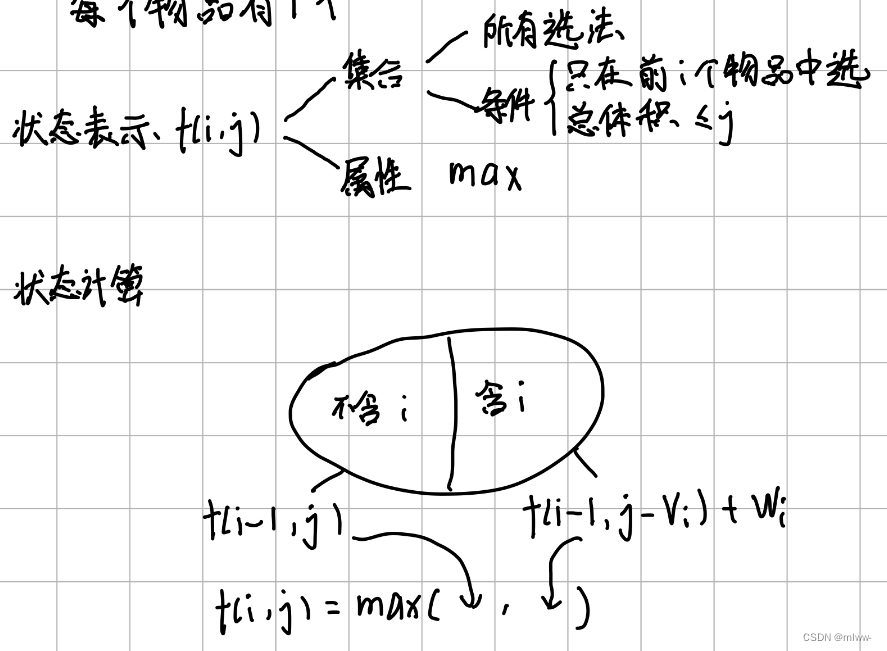 每个物品有1个
所有选法
集合
条件 只在前i个物品中选
总体积 ≤j
状态表示、f(i,j)
属性 max
状态计算
不含 i
含 i
f(i-1,j)
f(i-1,j-Vi)+Wi
f(i,j)=max( , )
CSDN @mlww-